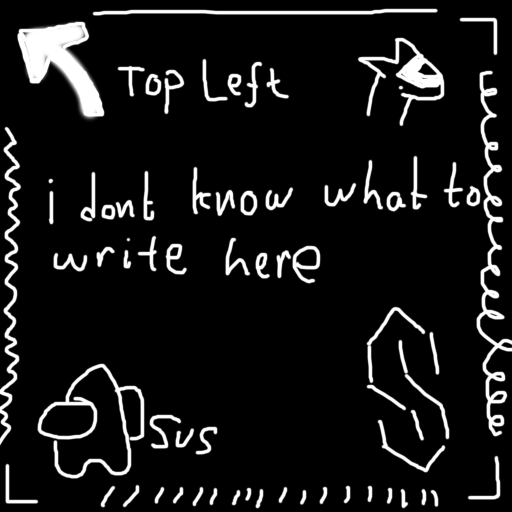 Top Left
i dont know what to
write here
Sus